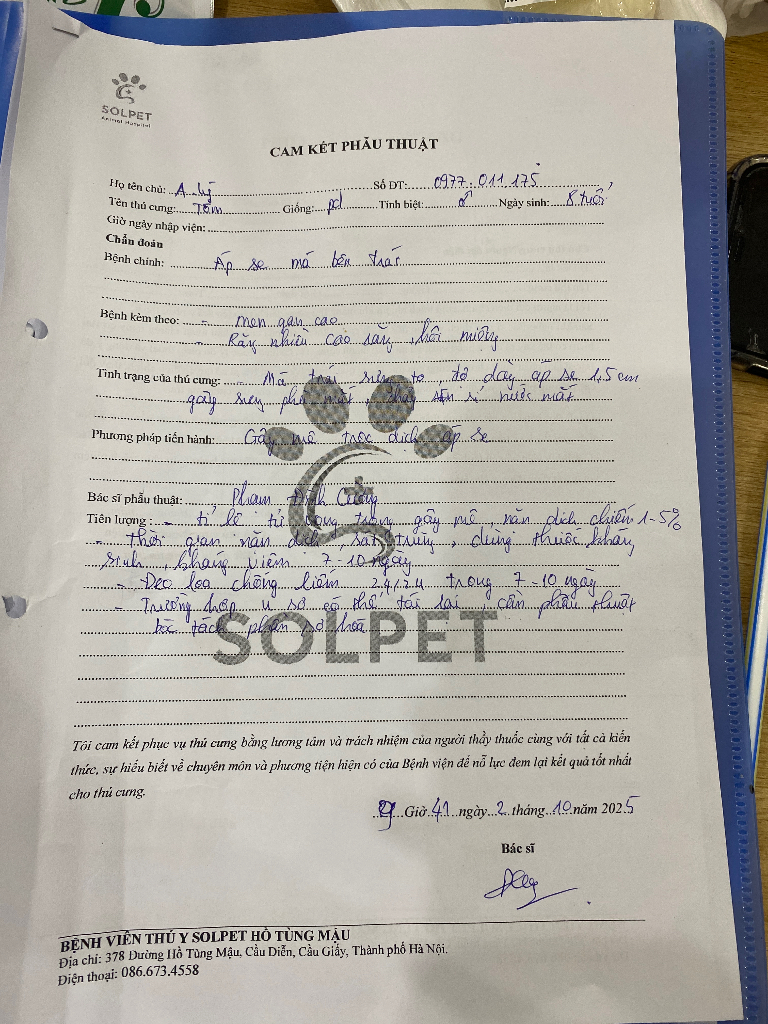 SOLPET
Animal Hospital
CAM KẾT PHẪU THUẬT
Họ tên chủ: A. Lý Số ĐT: 0977.011.175
Tên thú cưng: Tôm Giống: pd Tính biệt: ♂ Ngày sinh: 8 tuổi
Giờ ngày nhập viện:
Chẩn đoán
Bệnh chính: Áp se má bên trái
Bệnh kèm theo: - men gan cao
- Răng nhiều cao răng, hôi miệng
Tình trạng của thú cưng: - Má trái sưng to, độ dày áp se 1,5 cm
gây sưng phù mắt, chảy sẫn sỉ nước mắt
Phương pháp tiến hành: Gây mê trọc dịch áp se
Bác sĩ phẫu thuật: Phạm Đình Cường
Tiên lượng: - tỉ lệ tử vong trong gây mê, nặn dịch chiếm 1-5%
- thời gian nặn dịch, sát trùng, dùng thuốc kháng
sinh, kháng viêm 7-10 ngày
- Đeo loa chống liếm 24/24 trong 7-10 ngày
- Trường hợp u sơ có thể tái lại, cần phẫu thuật
bóc tách phần sơ hoá
SOLPET
Tôi cam kết phục vụ thú cưng bằng lương tâm và trách nhiệm của người thầy thuốc cùng với tất cả kiến
thức, sự hiểu biết về chuyên môn và phương tiện hiện có của Bệnh viện để nỗ lực đem lại kết quả tốt nhất
cho thú cưng.
9 Giờ 41 ngày 2 tháng 10 năm 2025
Bác sĩ
BỆNH VIỆN THÚ Y SOLPET HỒ TÙNG MẬU
Địa chỉ: 378 Đường Hồ Tùng Mậu, Cầu Diễn, Cầu Giấy, Thành phố Hà Nội.
Điện thoại: 086.673.4558